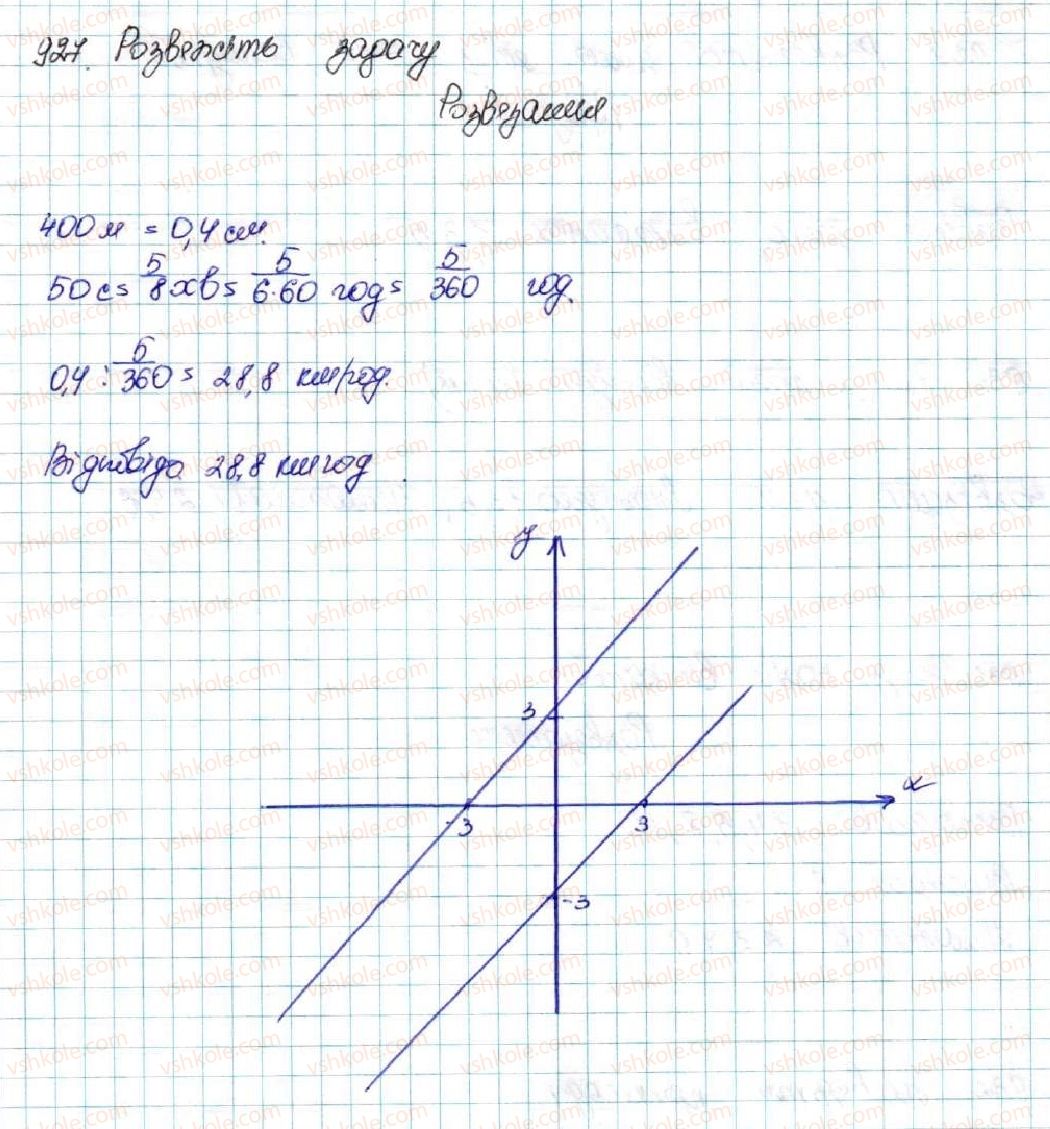 927. Розвежіть задачу
Розвезання
400 м = 0,4 см.
50 с = 5/8 хв = 5/6·60 год = 5/360 год.
0,4 : 5/360 = 28,8 км/год.
Відповідь 28,8 км год.
y
3
x
-3
3
-3